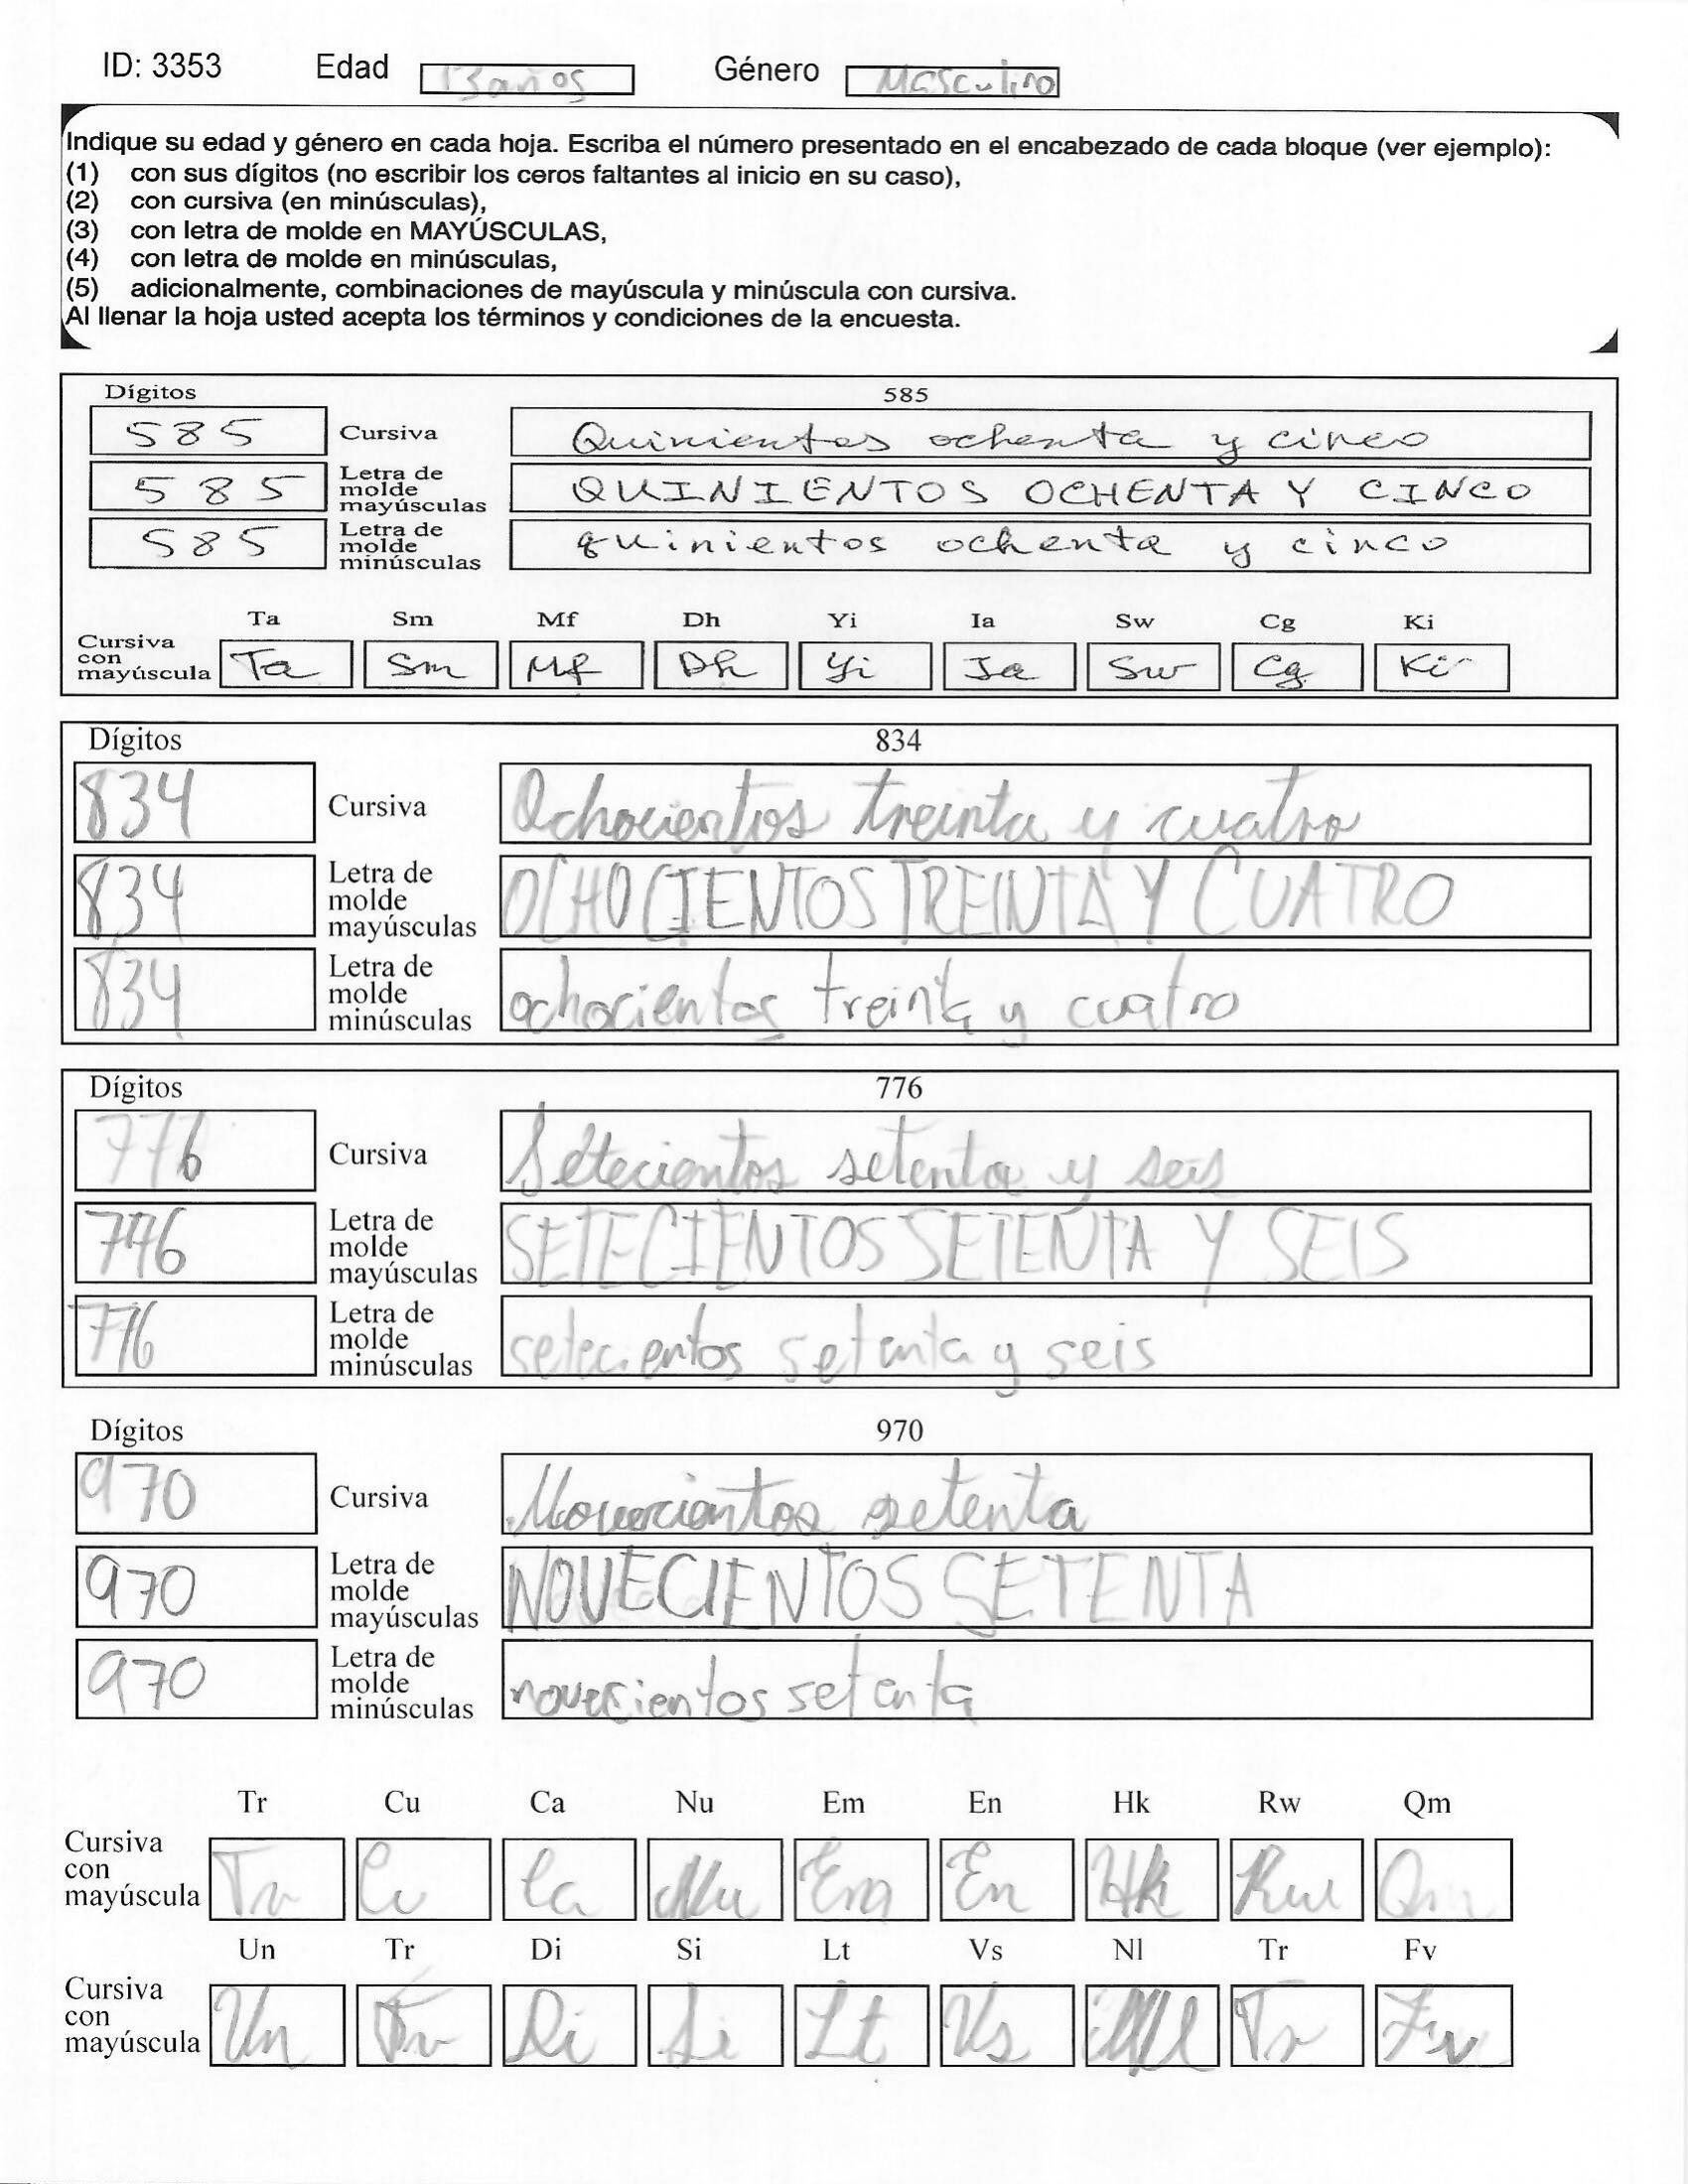 ID: 3353 Edad 13 años Género Masculino
Indique su edad y género en cada hoja. Escriba el número presentado en el encabezado de cada bloque (ver ejemplo):
(1) con sus dígitos (no escribir los ceros faltantes al inicio en su caso),
(2) con cursiva (en minúsculas),
(3) con letra de molde en MAYÚSCULAS,
(4) con letra de molde en minúsculas,
(5) adicionalmente, combinaciones de mayúscula y minúscula con cursiva.
Al llenar la hoja usted acepta los términos y condiciones de la encuesta.
Dígitos 585
585 Cursiva Quinientos ochenta y cinco
585 Letra de molde mayúsculas QUINIENTOS OCHENTA Y CINCO
585 Letra de molde minúsculas quinientos ochenta y cinco
Ta Sm Mf Dh Yi Ia Sw Cg Ki
Cursiva con mayúscula Ta Sm Mf Dh Yi Ia Sw Cg Ki
Dígitos 834
834 Cursiva Ochocientos treinta y cuatro
834 Letra de molde mayúsculas OCHOCIENTOS TREINTA Y CUATRO
834 Letra de molde minúsculas ochocientos treinta y cuatro
Dígitos 776
776 Cursiva Setecientos setenta y seis
776 Letra de molde mayúsculas SETECIENTOS SETENTA Y SEIS
776 Letra de molde minúsculas setecientos setenta y seis
Dígitos 970
970 Cursiva Novecientos setenta
970 Letra de molde mayúsculas NOVECIENTOS SETENTA
970 Letra de molde minúsculas novecientos setenta
Tr Cu Ca Nu Em En Hk Rw Qm
Cursiva con mayúscula Tr Cu Ca Nu Em En Hk Rw Qm
Un Tr Di Si Lt Vs Nl Tr Fv
Cursiva con mayúscula Un Tr Di Si Lt Vs Nl Tr Fv